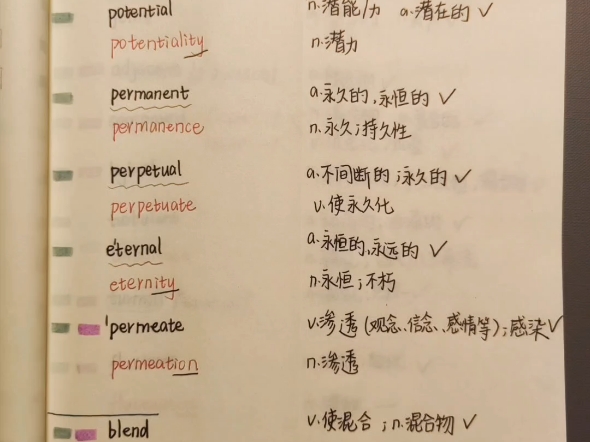 potential n.潜能/力 a.潜在的 ✓
potentiality n.潜力
permanent a.永久的,永恒的 ✓
permanence n.永久;持久性
perpetual a.不间断的;永久的 ✓
perpetuate v.使永久化
e'ternal a.永恒的,永远的 ✓
eternity n.永恒;不朽
'permeate v.渗透(观念、信念、感情等);感染✓
permeation n.渗透
blend v.使混合;n.混合物 ✓